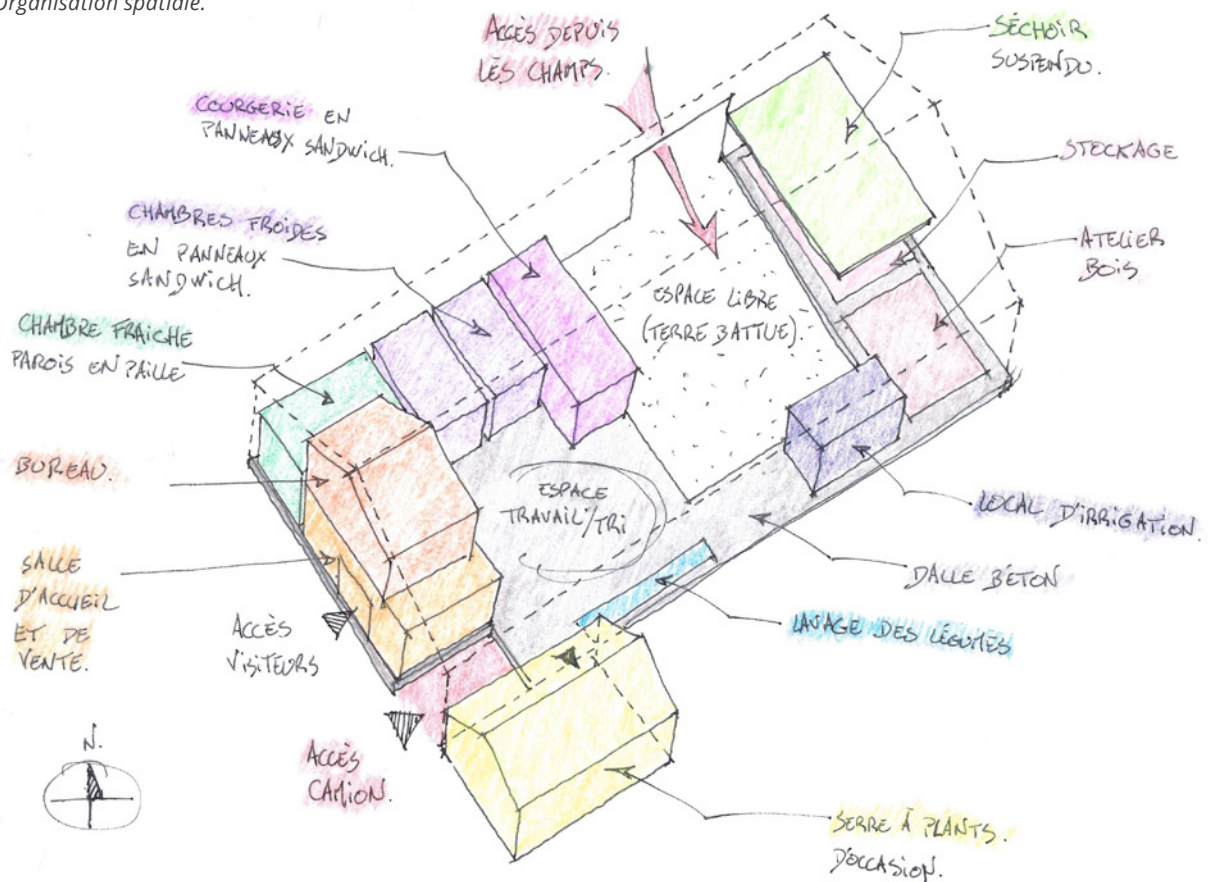 Organisation spatiale.
ACCÈS DEPUIS
LES CHAMPS.
SÉCHOIR
SUSPENDU.
COURGERIE EN
PANNEAUX SANDWICH.
STOCKAGE
CHAMBRES FROIDES
EN PANNEAUX
SANDWICH.
ATELIER
BOIS
ESPACE LIBRE
(TERRE BATTUE).
CHAMBRE FRAICHE
PAROIS EN PAILLE
BUREAU.
ESPACE
TRAVAIL/TRI
LOCAL D'IRRIGATION.
SALLE
D'ACCUEIL
ET DE
VENTE.
DALLE BÉTON
ACCÈS
VISITEURS
LAVAGE DES LÉGUMES
N.
ACCÈS
CAMION.
SERRE À PLANTS.
D'OCCASION.